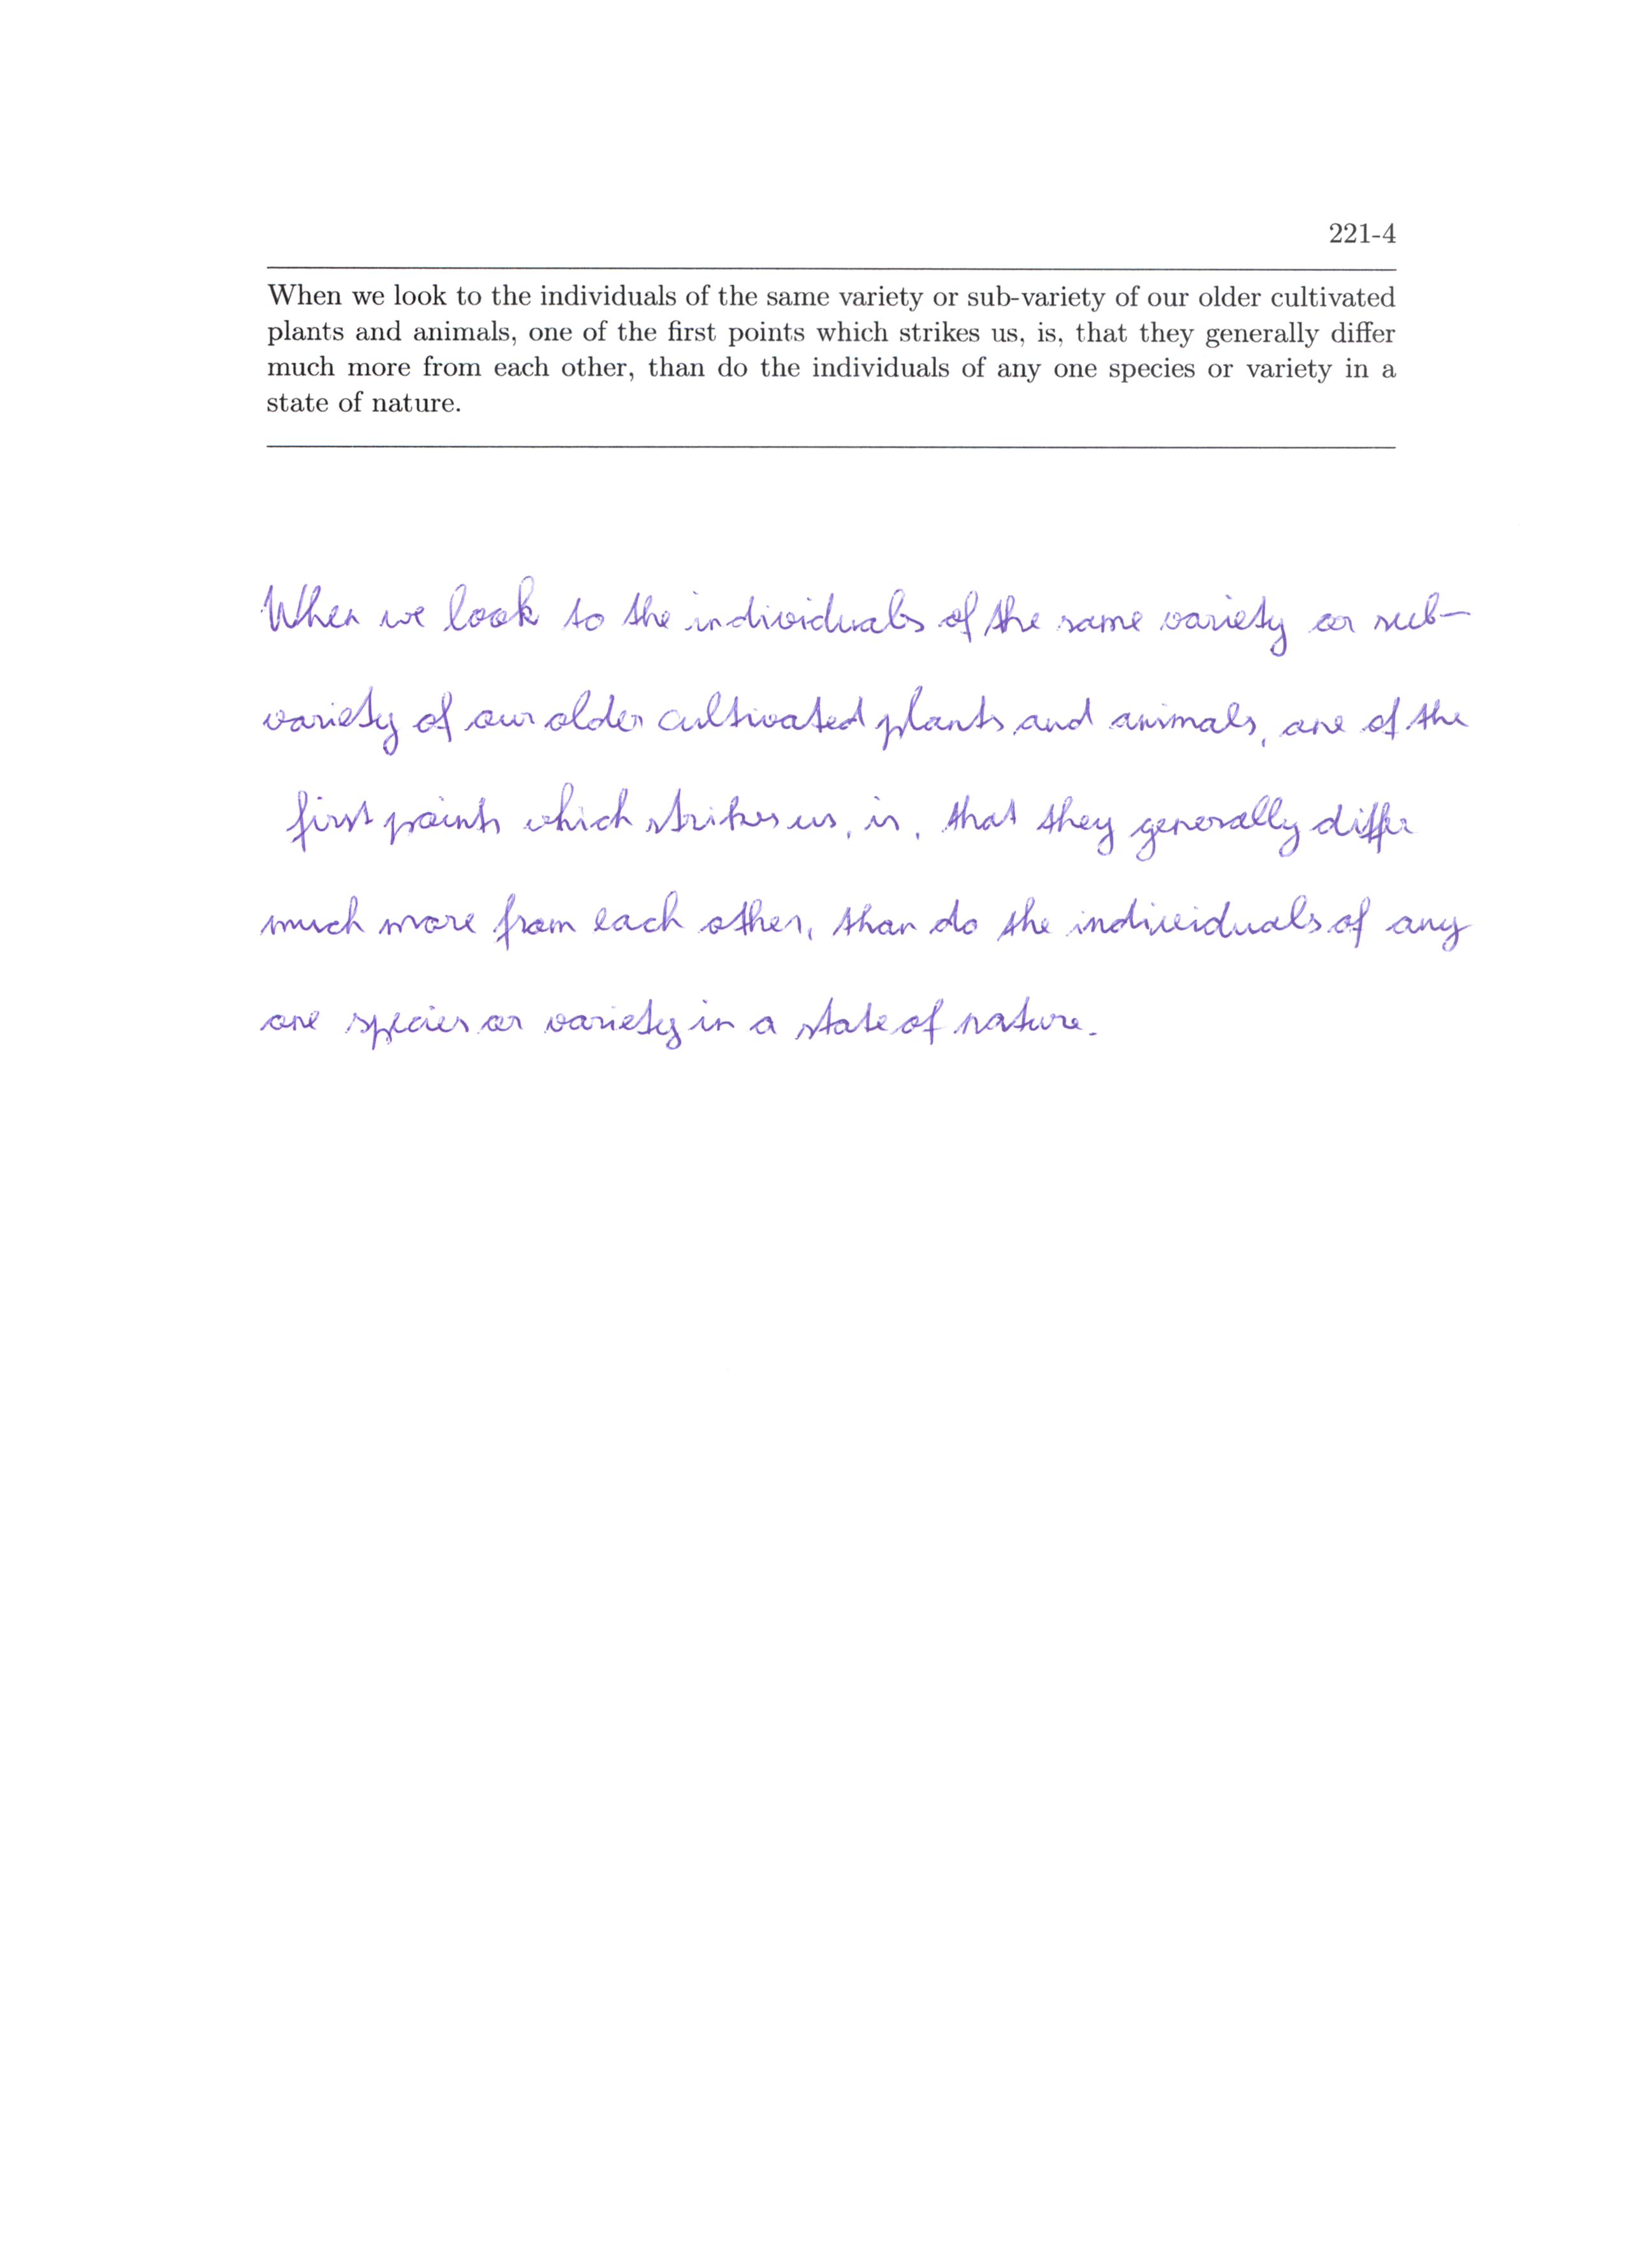 221-4
When we look to the individuals of the same variety or sub-variety of our older cultivated
plants and animals, one of the first points which strikes us, is, that they generally differ
much more from each other, than do the individuals of any one species or variety in a
state of nature.
When we look to the individuals of the same variety or sub-
variety of our older cultivated plants and animals, one of the
first points which strikes us, is, that they generally differ
much more from each other, than do the individuals of any
one species or variety in a state of nature.